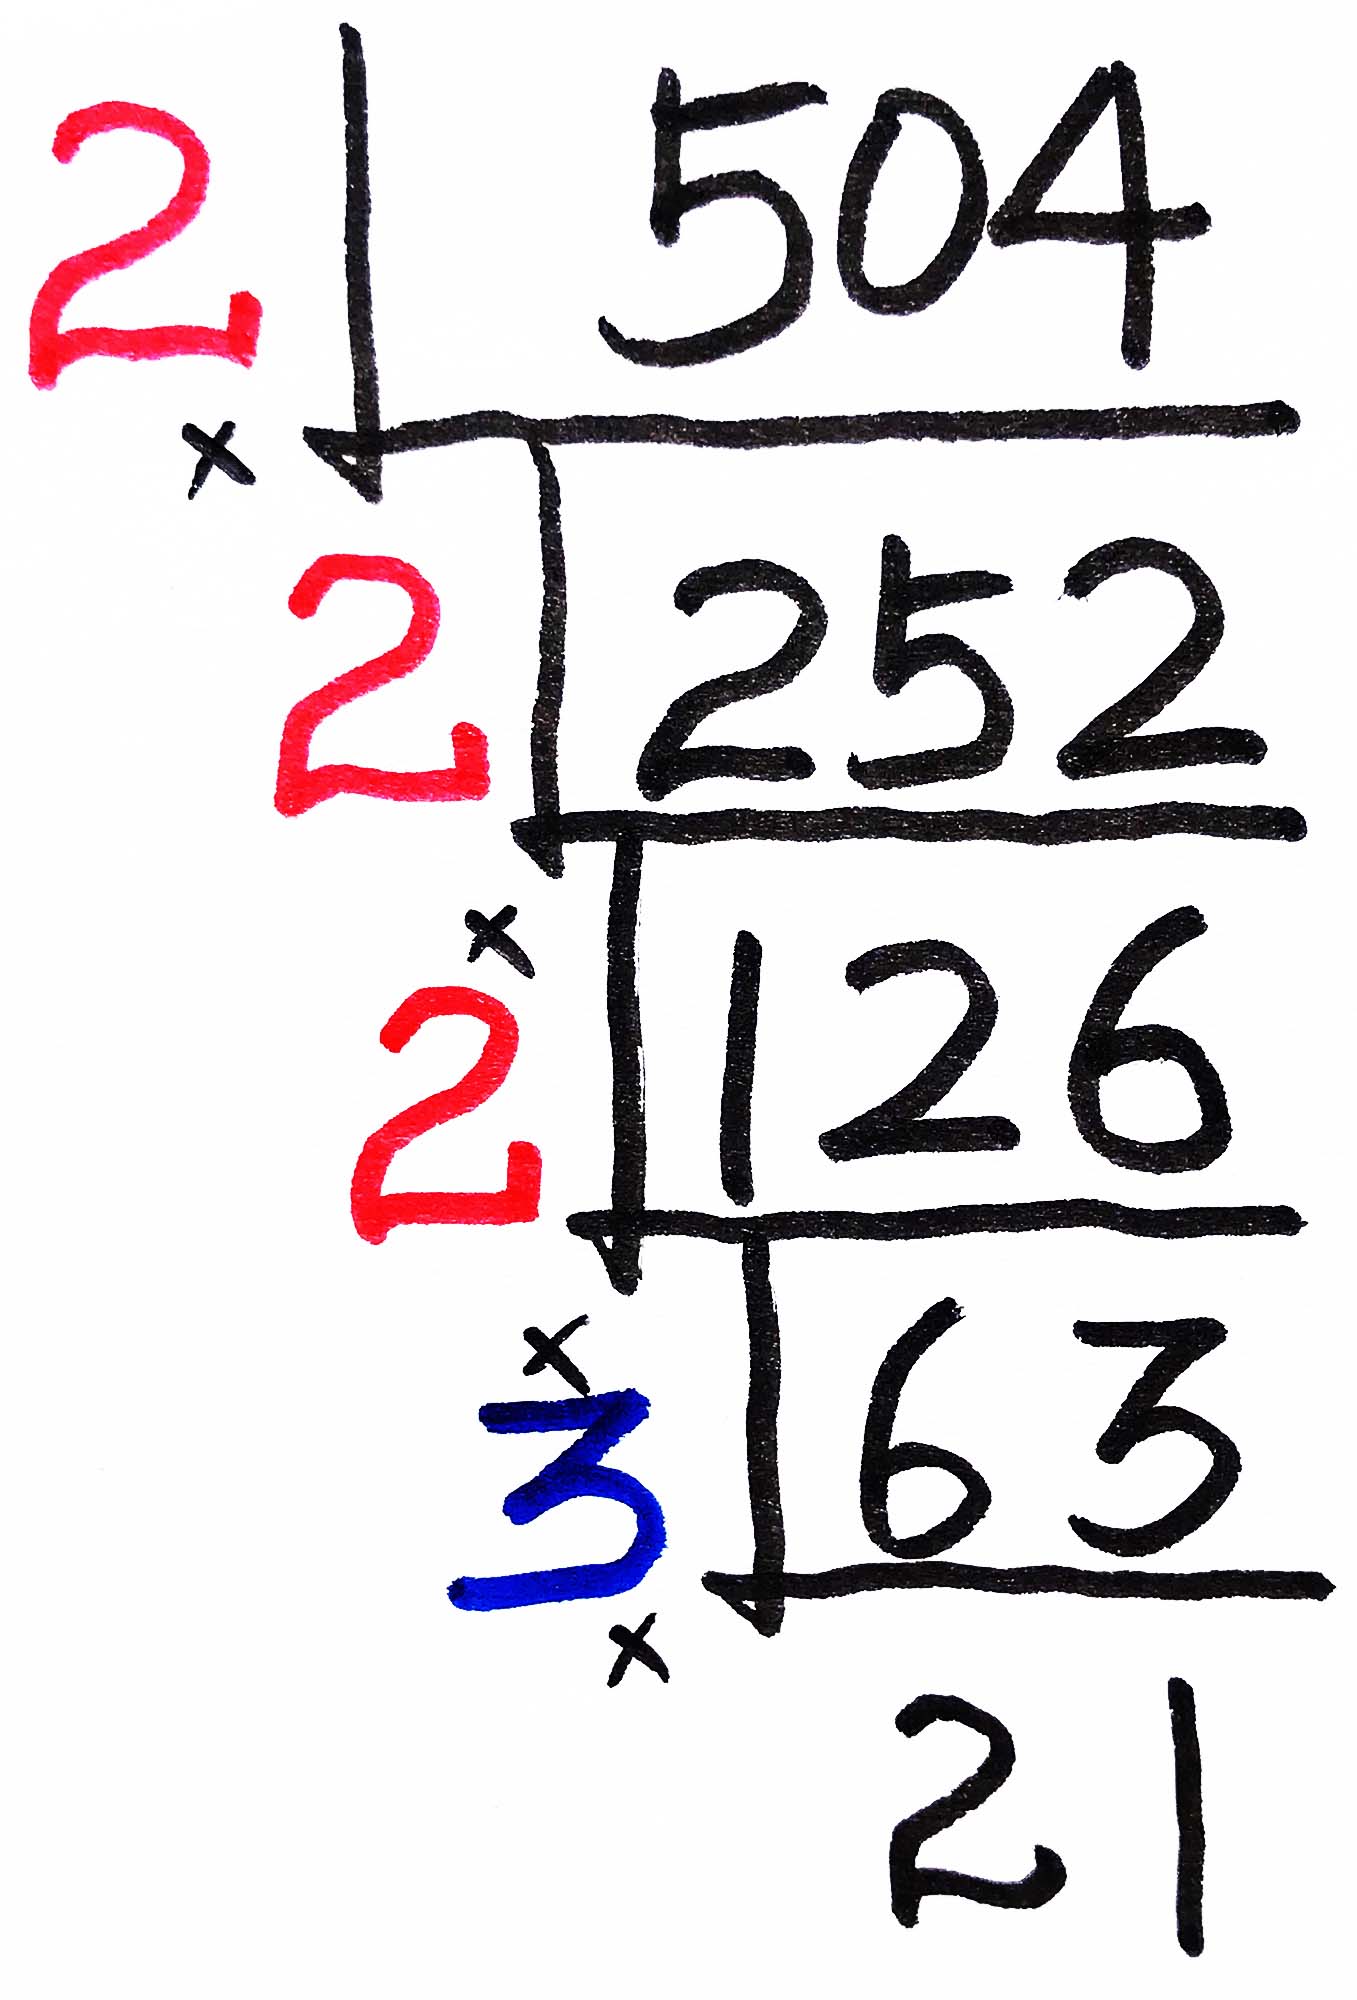 2 504
×
2 252
×
2 126
×
3 63
×
21